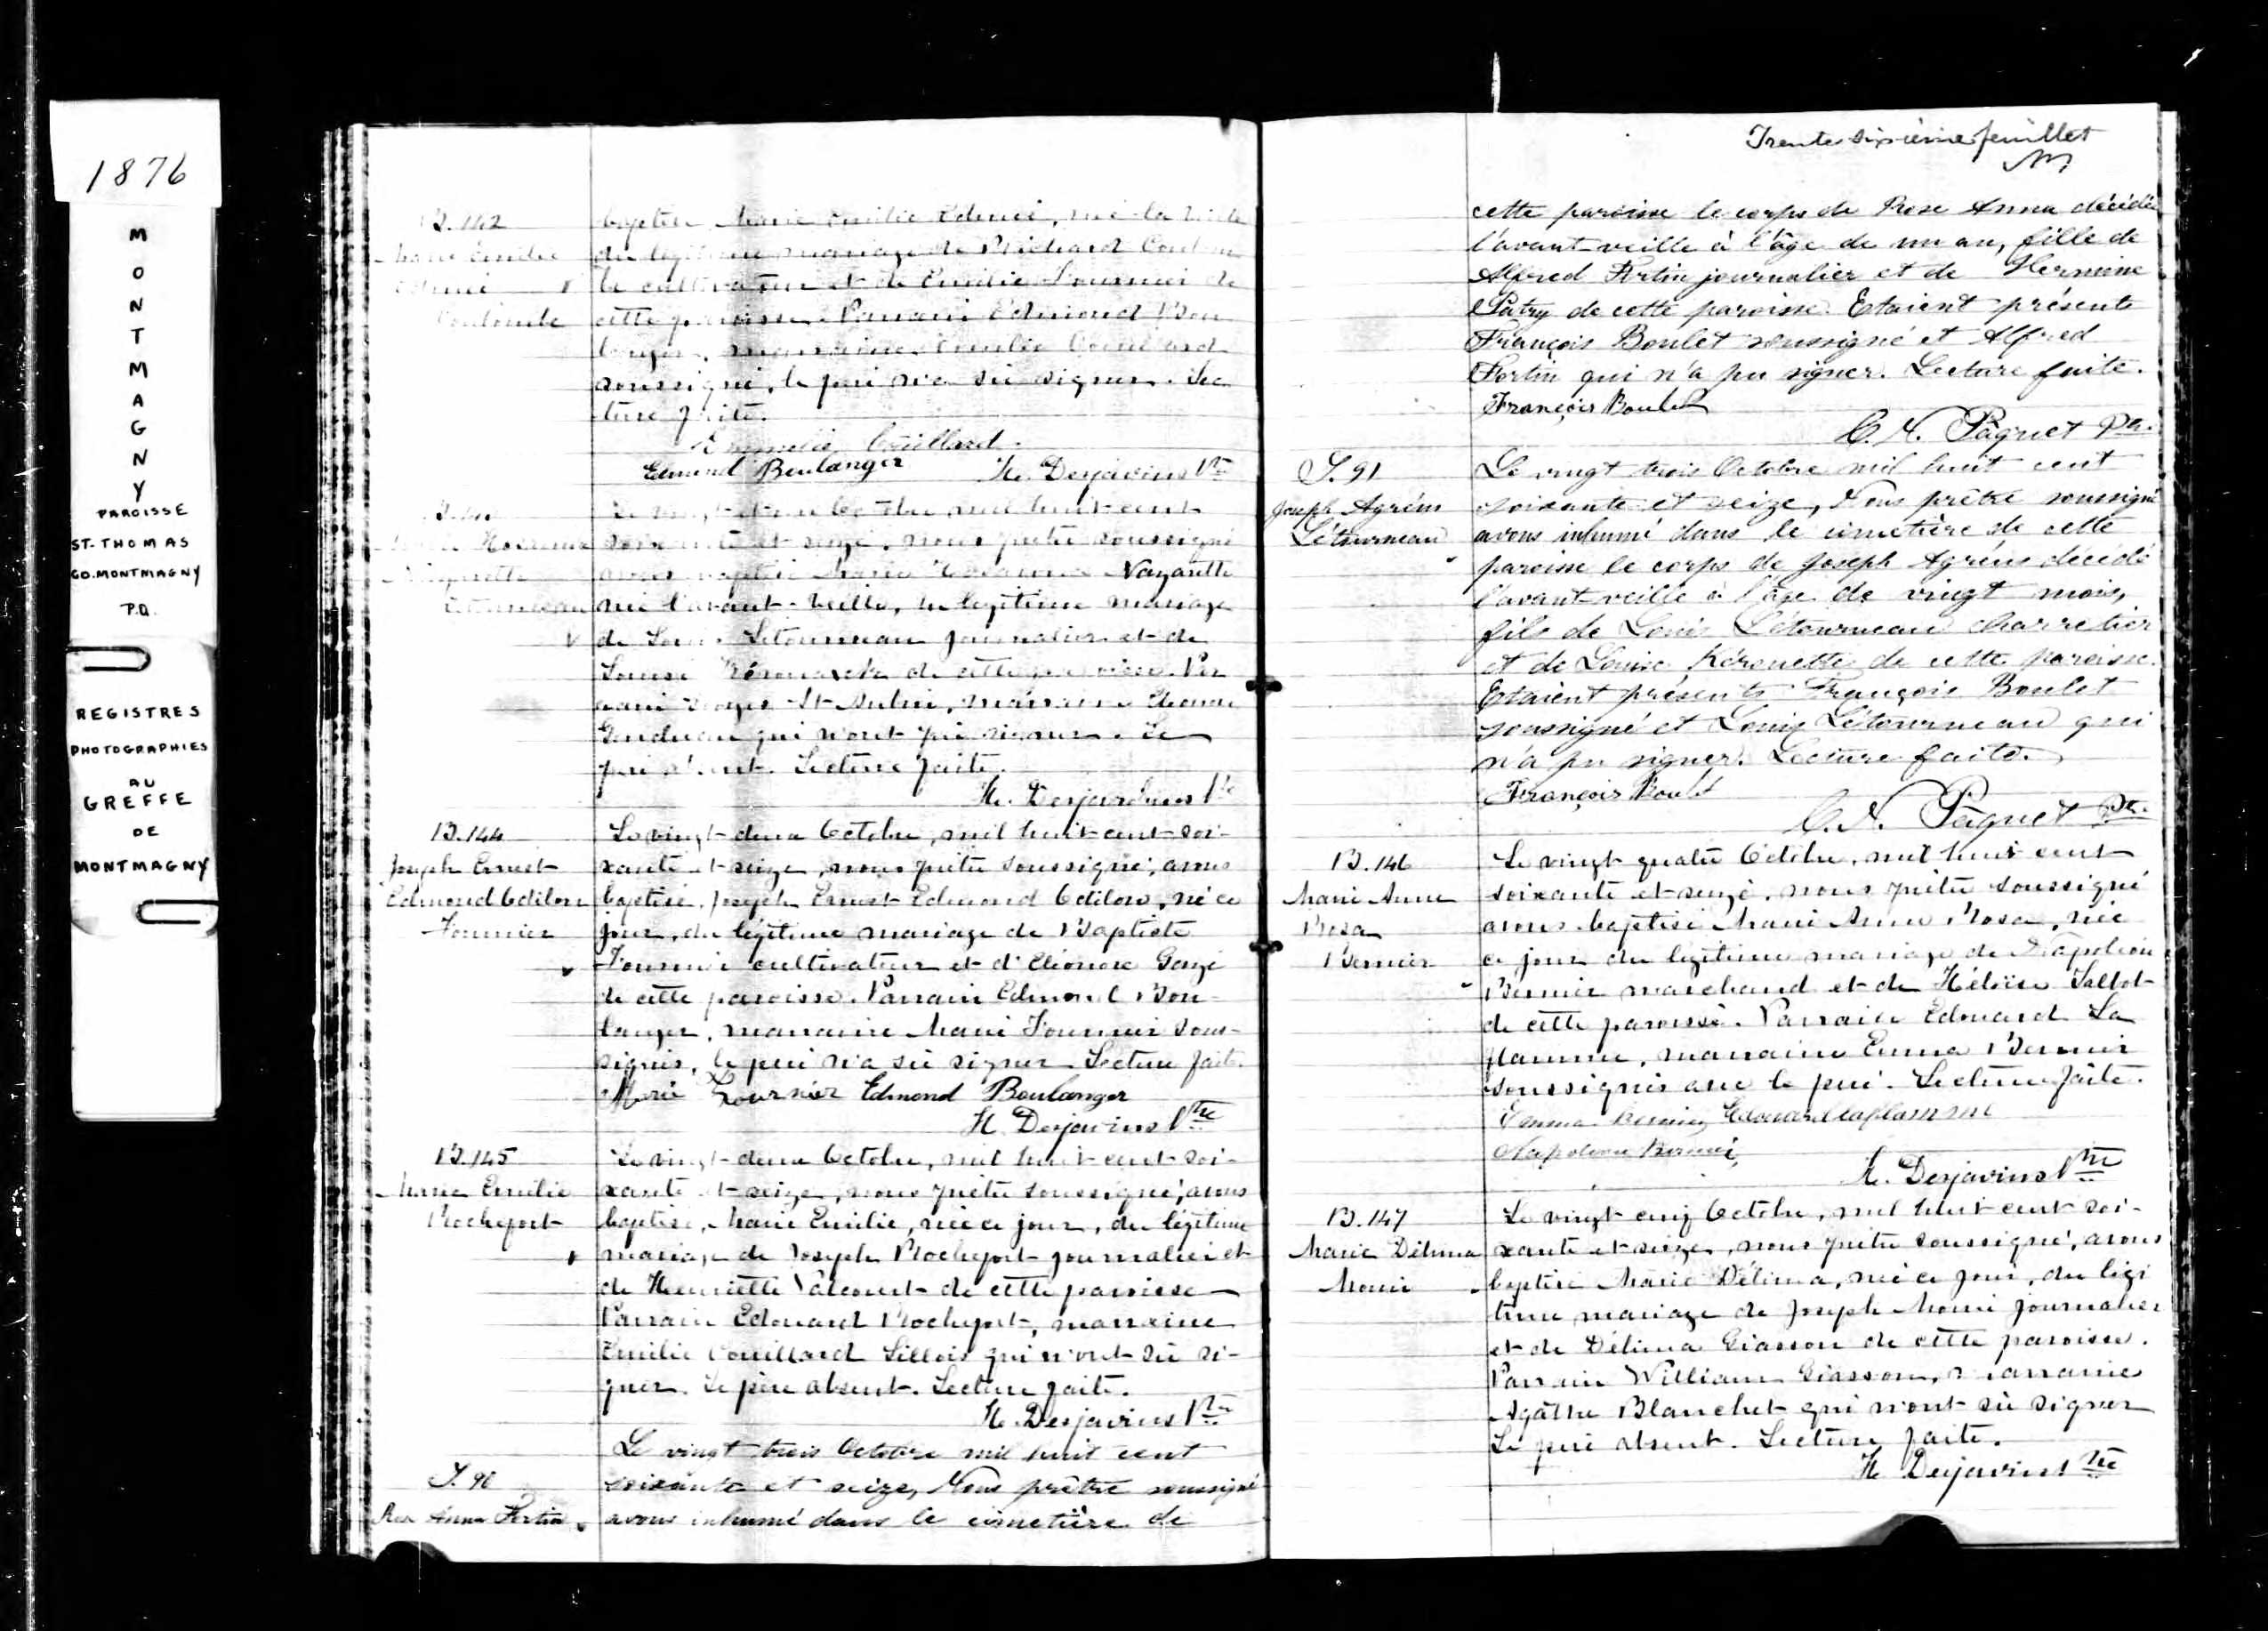 1876
MONTMAGNY
PAROISSE
ST-THOMAS
CO. MONTMAGNY
P.Q.
REGISTRES
PHOTOGRAPHIES
AU
GREFFE
DE
MONTMAGNY
B. 142
Marie Emilie
Coulombe
baptisé Marie Emilie née la veille
du légitime mariage de Richard Coulom
be cultivateur et de Emilie Fournier de
cette paroisse. Parrain Edmond Bou
langer, marraine Emilie Couillard
soussignés, le père n'a su signer. Lec
ture faite.
Couillard
Edmond Boulanger H. Desjardins Ptre
Le vingt et un Octobre mil huit cent
soixante et seize, nous prêtre soussigné
avons baptisé Marie Nazarette
née l'avant-veille, du légitime mariage
de Louis Letourneau journalier et de
Louise de cette paroisse. Par
rain St Aubin, marraine
qui n'ont pu signer. Le
père absent. Lecture faite.
H. Desjardins Ptre
B. 144
Joseph Ernest
Edmond Odilon
Fournier
Le vingt-deux Octobre, mil huit-cent-soi-
xante et seize, nous prêtre soussigné, avons
baptisé, Joseph Ernest Edmond Odilon, né ce
jour, du légitime mariage de Baptiste
Fournier cultivateur et d'Eléonore
de cette paroisse. Parrain Edmond Bou-
langer, marraine Marie Fournier sous-
signés, le père n'a su signer. Lecture faite.
Marie Fournier Edmond Boulanger
H. Desjardins Ptre
B. 145
Marie Emilie
Rochefort
Le vingt-deux Octobre, mil huit-cent-soi-
xante et seize, nous prêtre soussigné, avons
baptisé, Marie Emilie, née ce jour, du légitime
mariage de Joseph Rochefort journalier et
de Henriette Valcourt de cette paroisse
Parrain Edouard Rochefort, marraine
Emilie Couillard Lillois qui n'ont su si-
gner. Le père absent. Lecture faite.
H. Desjardins Ptre
S. 90
Rose Anna Fortin
Le vingt trois Octobre mil huit cent
soixante et seize, Nous prêtre soussigné
avons inhumé dans le cimetière de
Trente sixième feuillet
cette paroisse le corps de Rose Anna décédée
l'avant veille à l'âge de un an, fille de
Alfred Fortin journalier et de Hermine
Patry de cette paroisse. Etaient présents
François Boulet soussigné et Alfred
Fortin qui n'a pu signer. Lecture faite.
François Boulet
C. N. Pâquet Ptr.
S. 91
Joseph Agréus
Létourneau
Le vingt trois Octobre mil huit cent
soixante et seize, Nous prêtre soussigné
avons inhumé dans le cimetière de cette
paroisse le corps de Joseph Agréus décédé
l'avant veille à l'âge de vingt mois,
fils de Louis Létourneau charretier
et de Louise Kérouette de cette paroisse.
Etaient présents François Boulet
soussigné et Louis Létourneau qui
n'a pu signer. Lecture faite.
François Boulet
C. N. Pâquet Ptr.
B. 146
Marie Anne
Rosa
Bernier
Le vingt quatre Octobre, mil huit cent
soixante et seize, nous prêtre soussigné
avons baptisé Marie Anne Rosa, née
ce jour du légitime mariage de Napoléon
Bernier marchand et de Héloïse Talbot
de cette paroisse. Parrain Edouard La
flamme, marraine Emma Bernier
soussignés avec le père. Lecture faite.
Emma Bernier Edouard Laflamme
Napoléon Bernier,
H. Desjardins Ptre
B. 147
Marie Délima
Morin
Le vingt cinq Octobre, mil huit cent soi-
xante et seize, nous prêtre soussigné, avons
baptisé Marie Délima, née ce jour, du légi
time mariage de Joseph Morin journalier
et de Délima Giasson de cette paroisse.
Parrain William Giasson, marraine
Agâthe Blanchet qui n'ont su signer
Le père absent. Lecture faite.
H. Desjardins Ptre